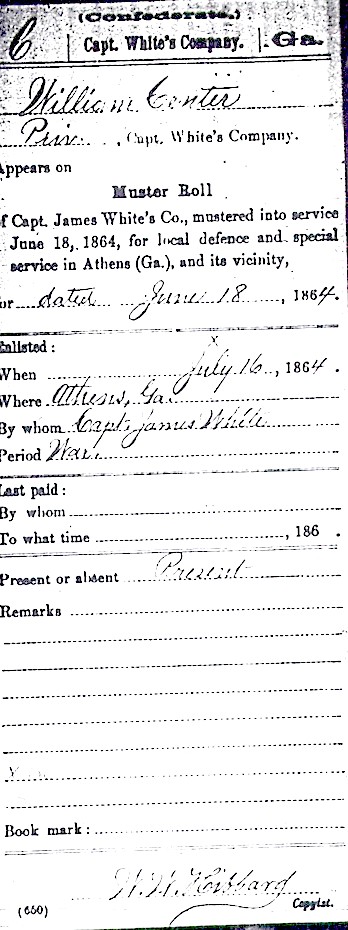 (Confederate.)
C | Capt. White's Company. | Ga.
William Center
Priv , Capt. White's Company.
Appears on
Muster Roll
f Capt. James White's Co., mustered into service
June 18, 1864, for local defence and special
service in Athens (Ga.), and its vicinity,
or dated June 18, 1864.
Enlisted:
x
When July 16, 1864.
Where Athens, Ga.
By whom Capt. James White
Period War.
Last paid:
By whom
To what time , 186 .
Present or absent Present
Remarks
Book mark:
W. W. Hibbard
(650) Copyist.